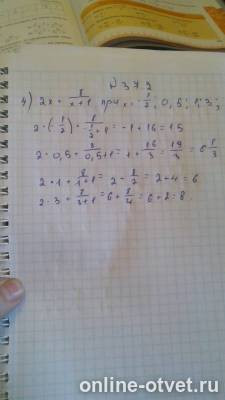 № 37.2
4) 2x + 8/(x+1) при x = -1/2; 0,5; 1; 3;
2·(-1/2) + 8/(-1/2+1) = -1+16 = 15
2·0,5 + 8/(0,5+1) = 1 + 16/3 = 19/3 = 6 1/3
2·1 + 8/(1+1) = 2 - 8/2 = 2+4 = 6
2·3 + 8/(3+1) = 6 + 8/4 = 6+2 = 8.
online-otvet.ru